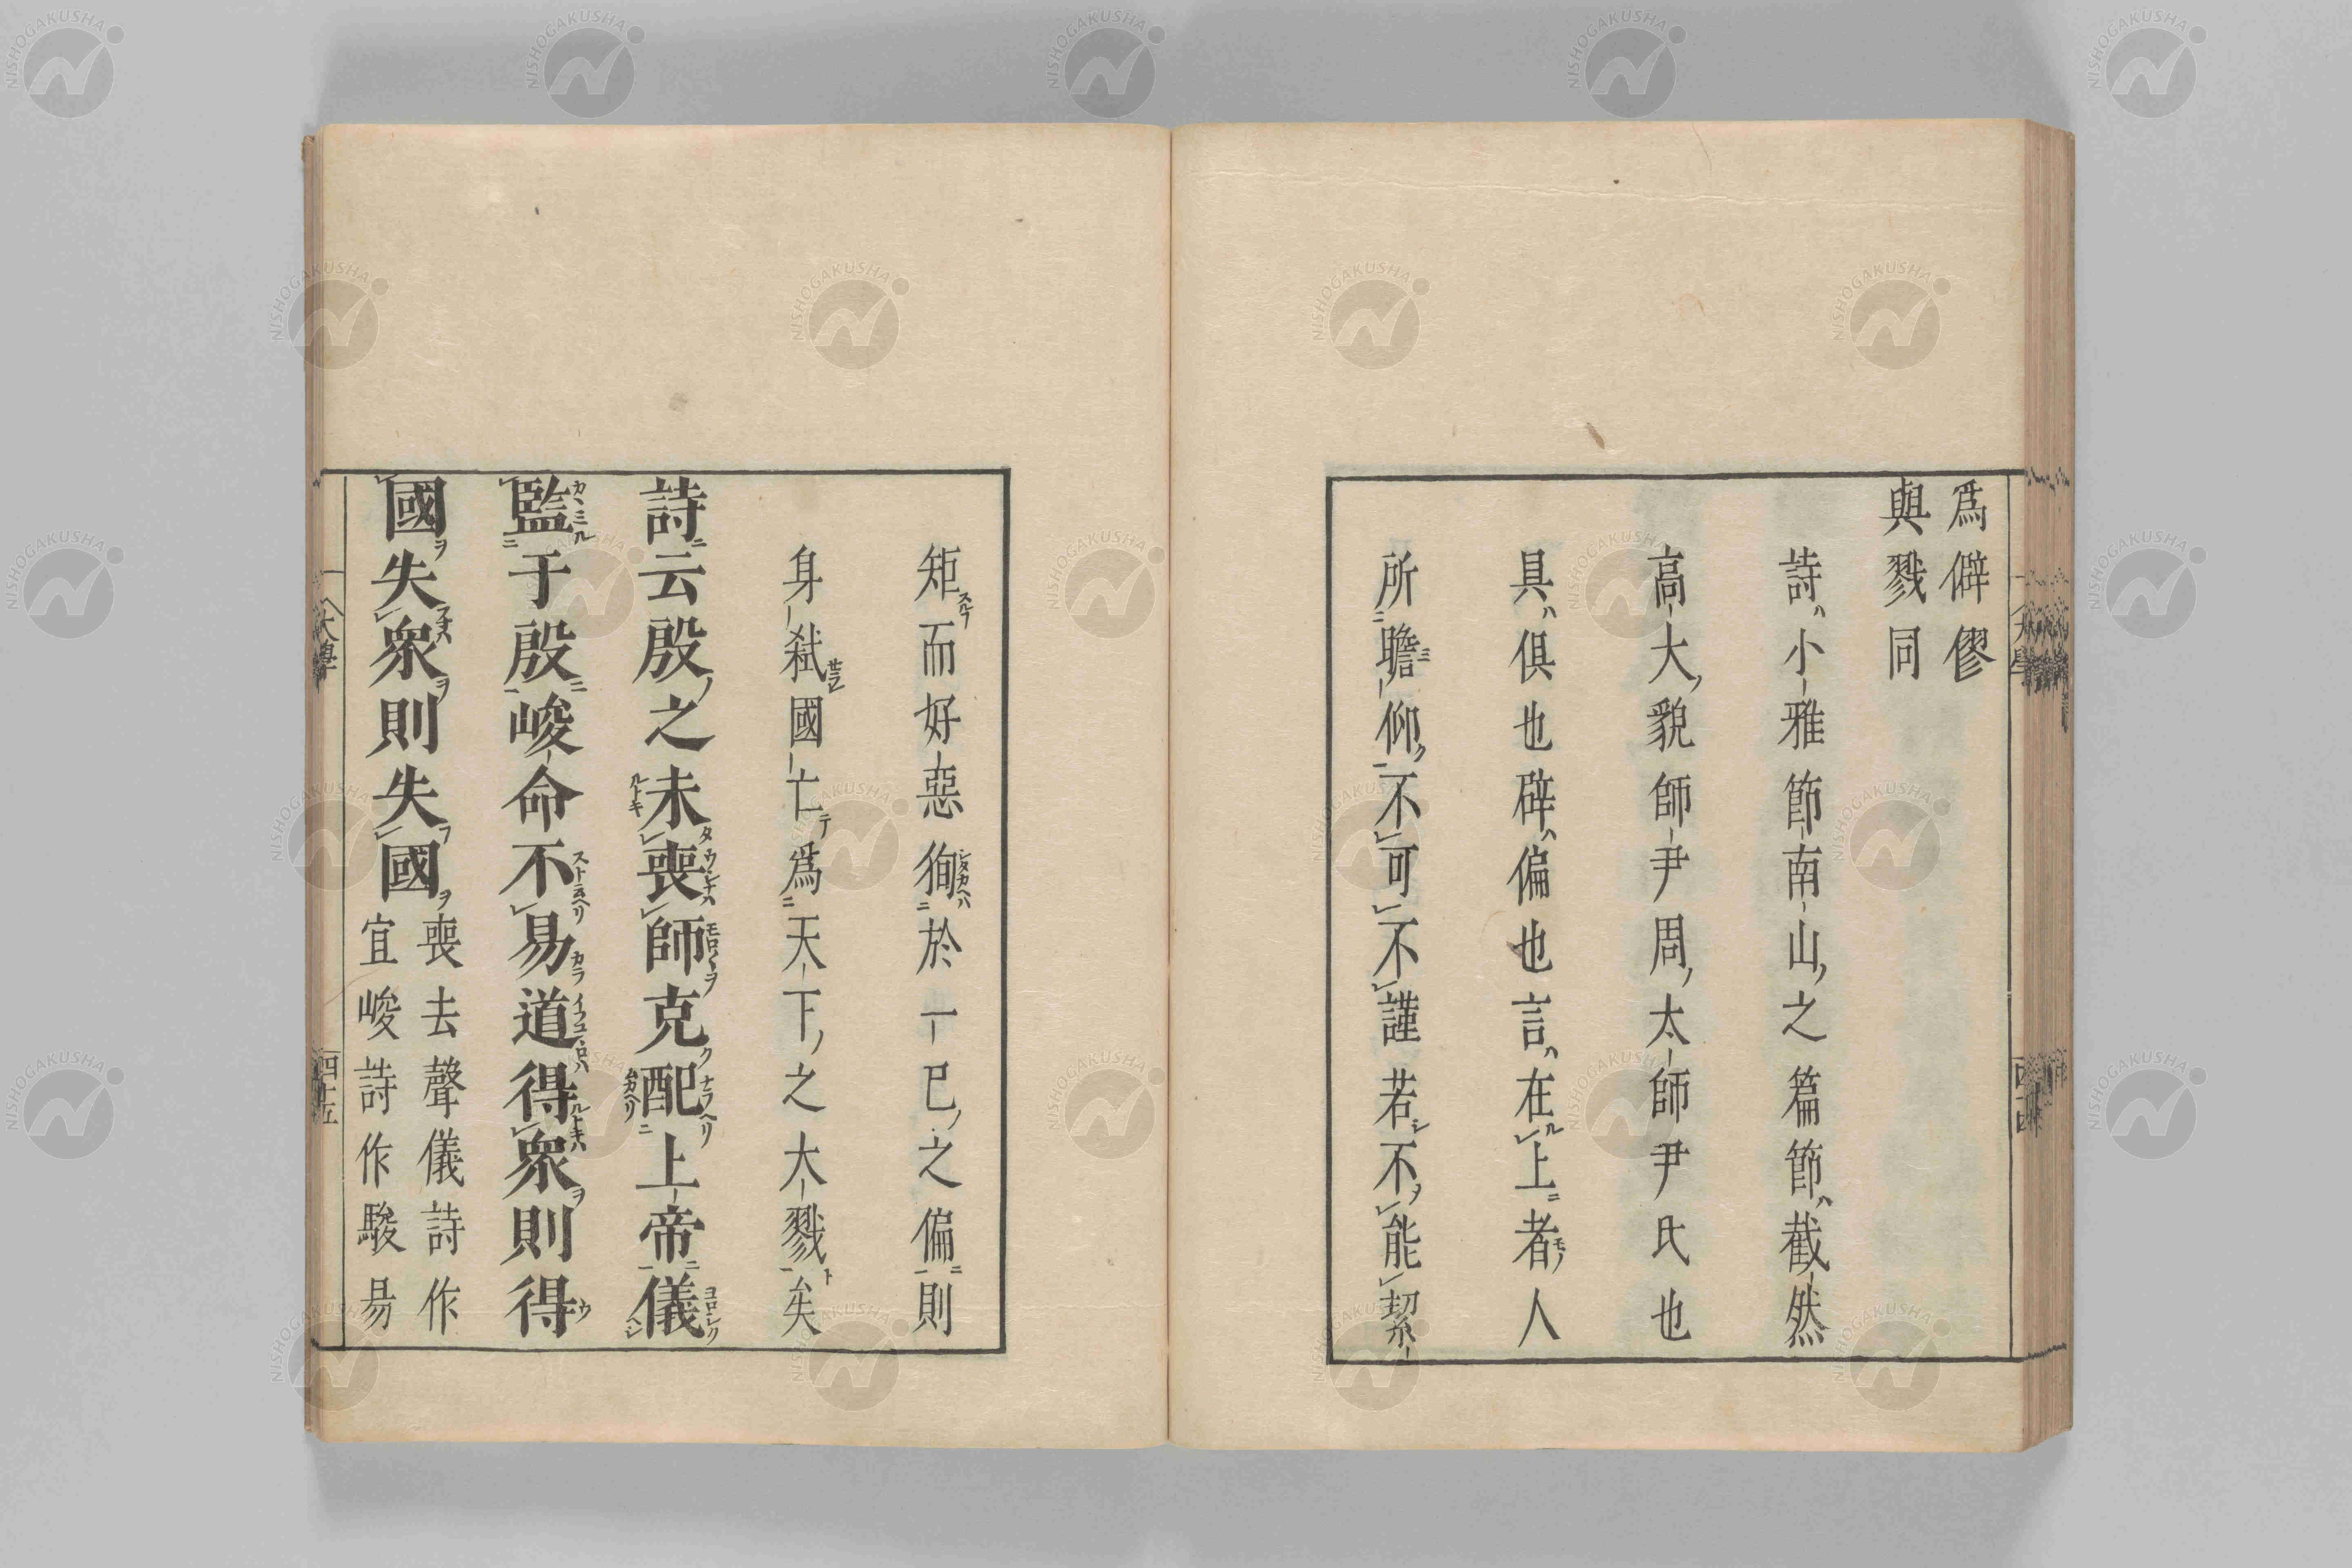 爲僻僇
與戮同
詩小雅節南山之篇節截然
高大貌師尹周太師尹氏也
具俱也辟偏也言在上者人
所瞻仰不可不謹若不能絜
矩而好惡狥於一已之偏則
身弑國亡爲天下之大戮矣
詩云殷之未喪師克配上帝儀
監于殷峻命不易道得衆則得
國失衆則失國
喪去聲儀詩作
宜峻詩作駿易
大學
四十五
NISHOGAKUSHA